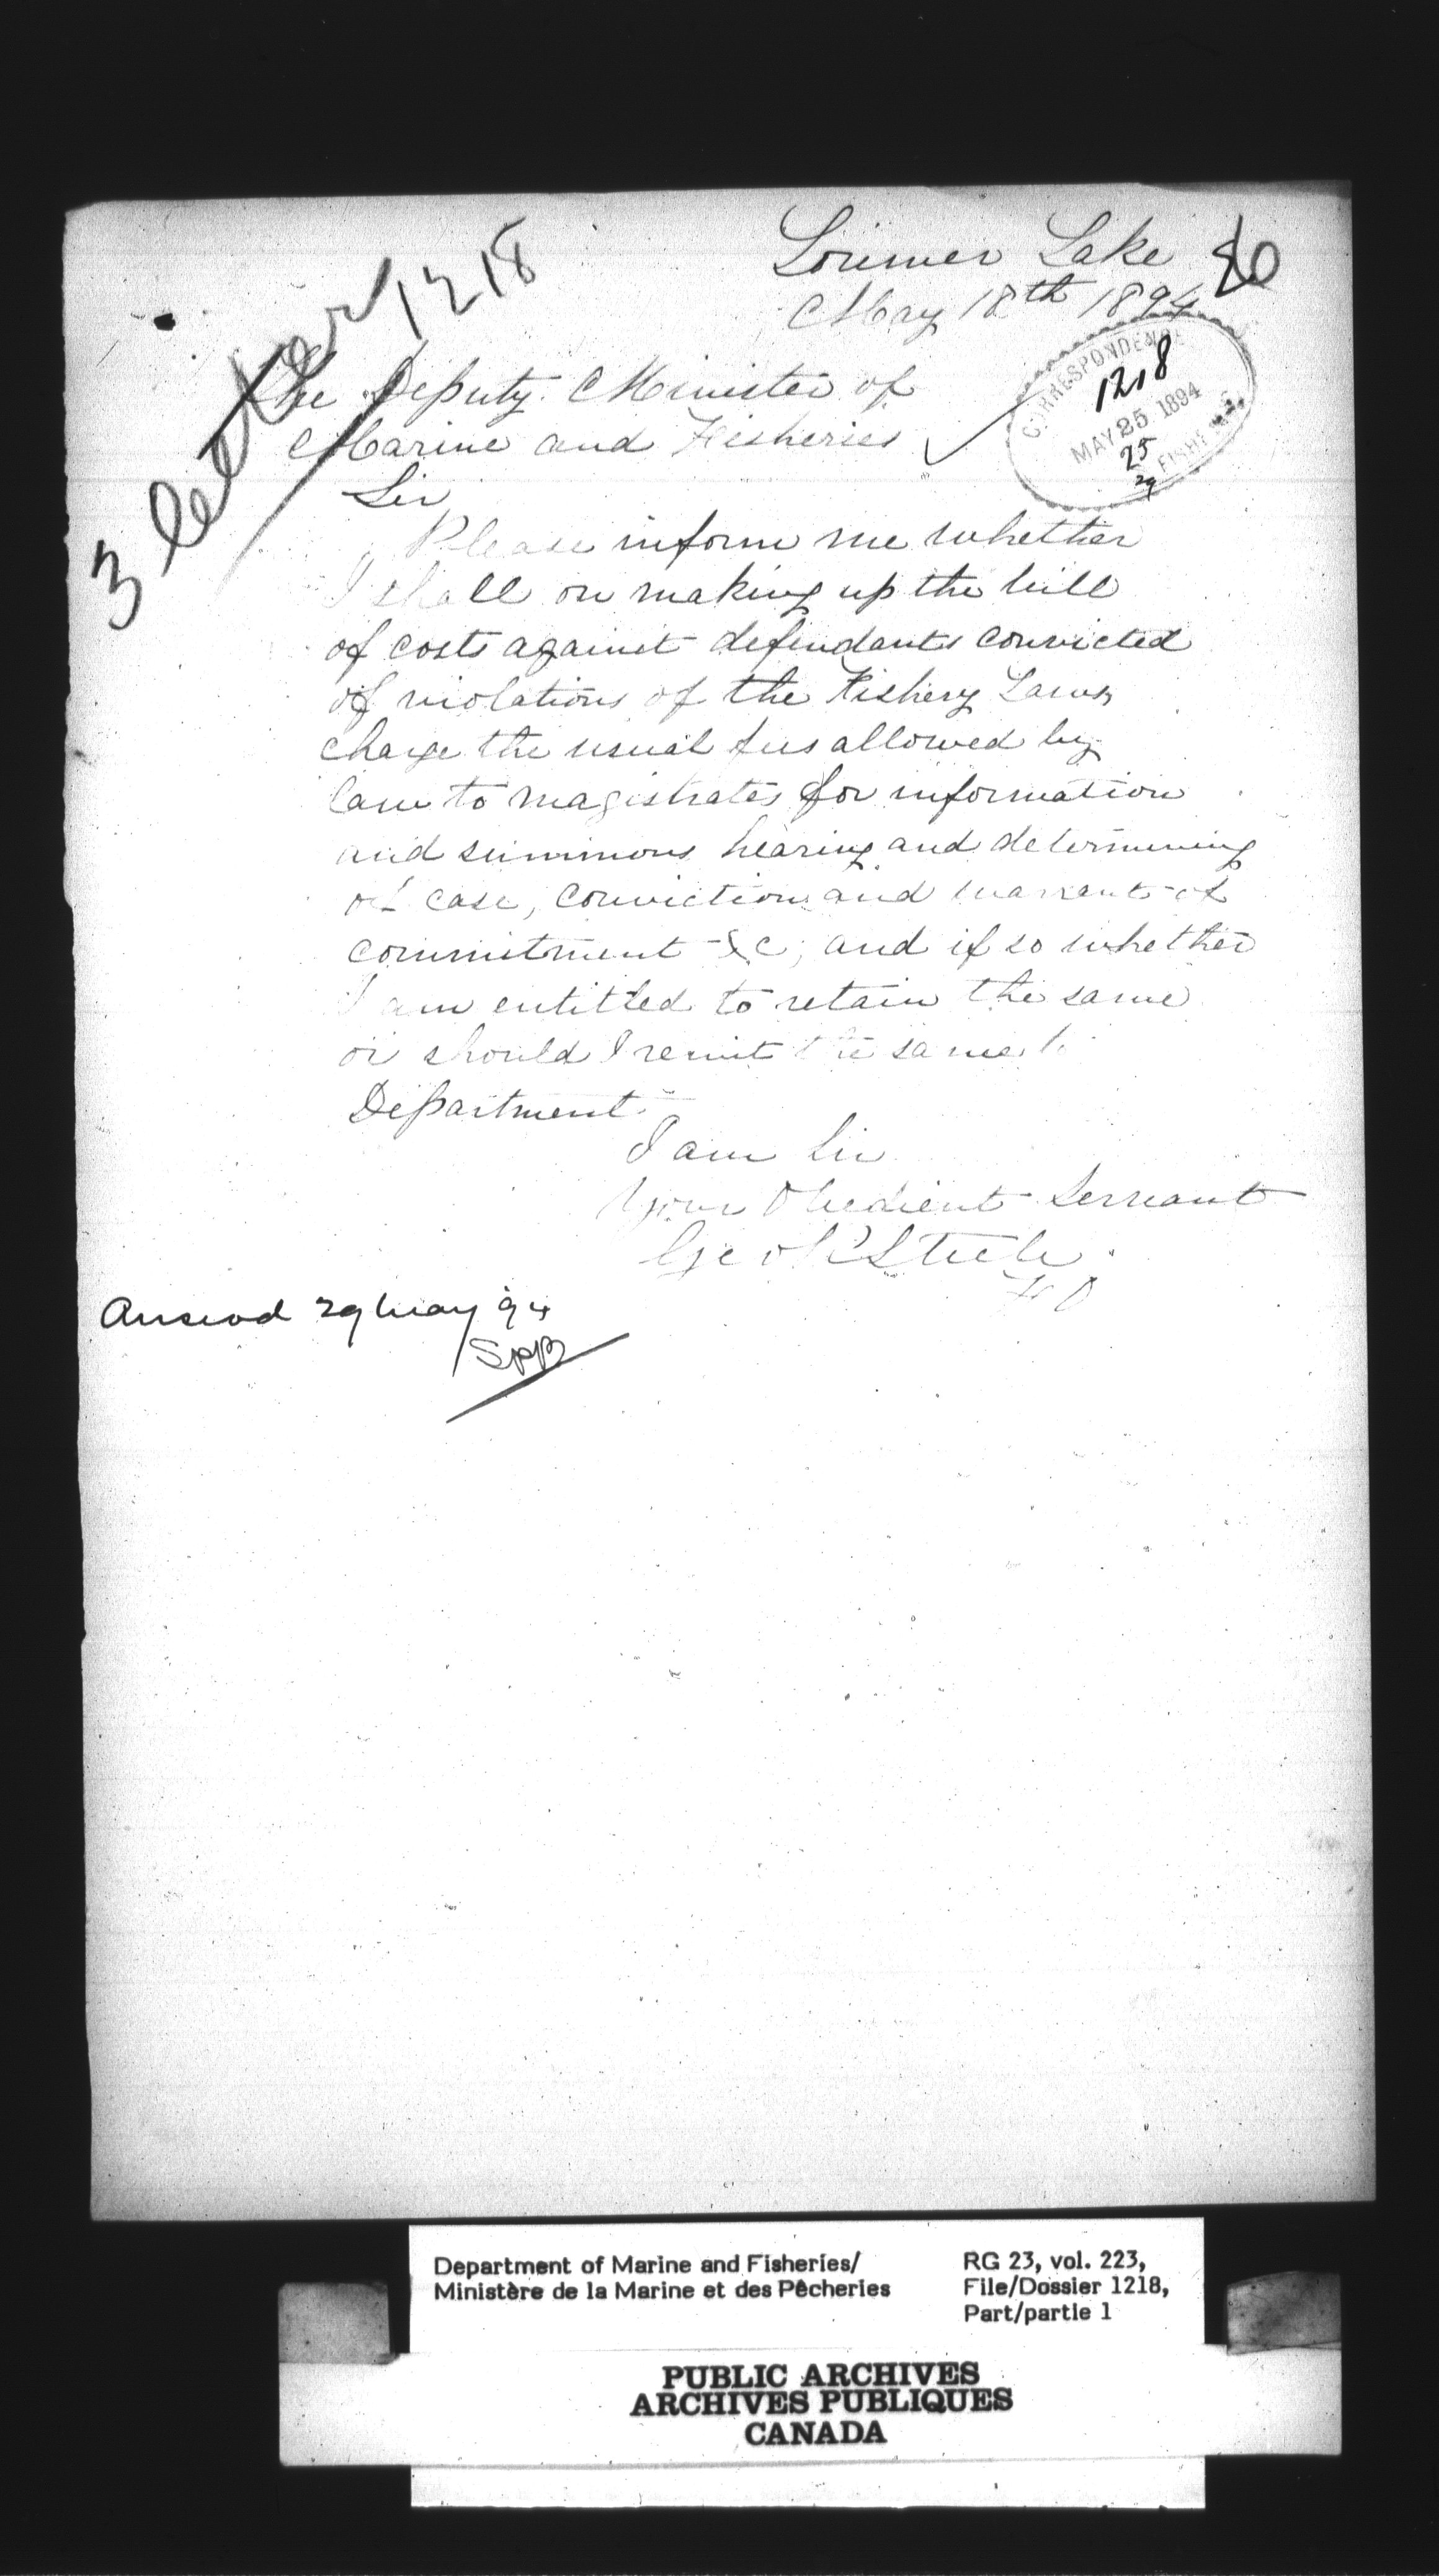 Lorimer Lake
80
May 18th 1894
3 letter 1218
CORRESPONDENCE
1218
MAY 25 1894
25
29
FISHERIES
The Deputy Minister of
Marine and Fisheries
Sir
Please inform me whether
I shall on making up the bill
of costs against defendants convicted
of violations of the Fishery Laws
charge the usual fees allowed by
law to magistrates for information
and summons hearing and determining
of case, conviction and warrant of
commitment &c, and if so whether
I am entitled to retain the same
or should I remit the same to
Department.
I am Sir
Your Obedient Servant
Geo Steele
F O
Answd 29 May 94
SPB
Department of Marine and Fisheries/
Ministère de la Marine et des Pêcheries
RG 23, vol. 223,
File/Dossier 1218,
Part/partie 1
PUBLIC ARCHIVES
ARCHIVES PUBLIQUES
CANADA